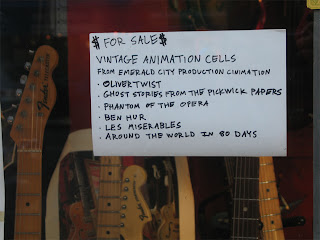 $ FOR SALE $
VINTAGE ANIMATION CELLS
FROM EMERALD CITY PRODUCTION CINIMATION
• OLIVER TWIST
• GHOST STORIES FROM THE PICKWICK PAPERS
• PHANTOM OF THE OPERA
• BEN HUR
• LES MISERABLES
• AROUND THE WORLD IN 80 DAYS
Fender